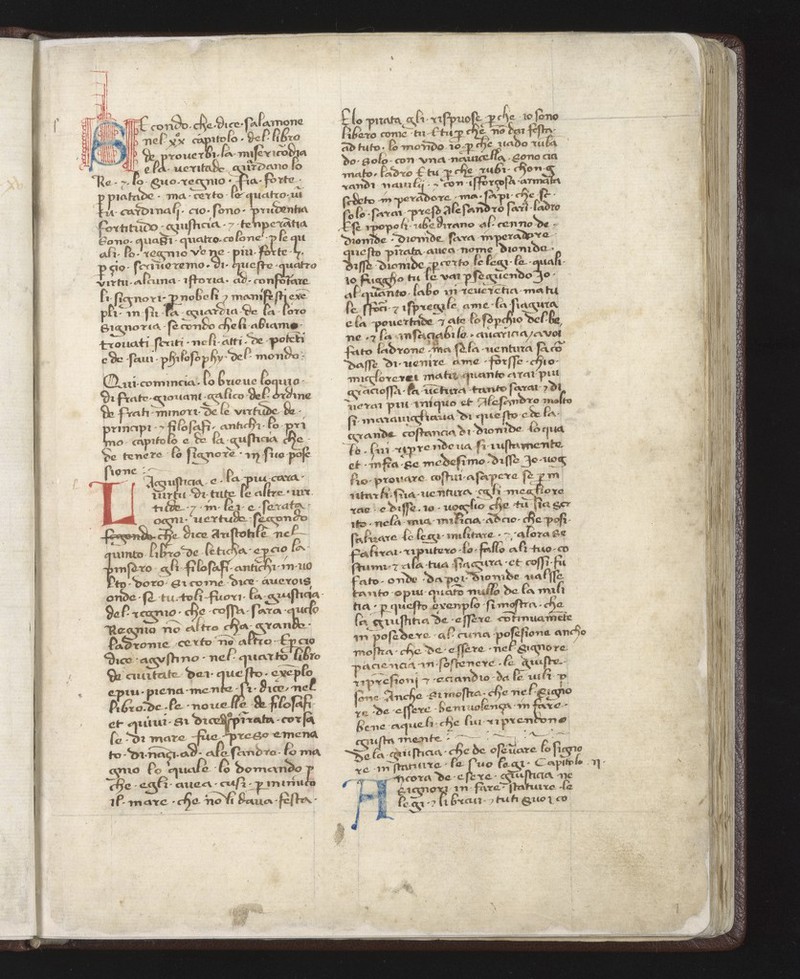 SE condo · che · dice · salamone
nel · xx° capitolo · del · libro
de proverbi · la · misericordia
e la · veritade guardano lo
Re · ⁊ · lo suo regnio · sia · forte ·
p piatade · ma · certo lo quatro · vi
tu · cardinali · cio · sono · prudentia
fortitudo · giusticia · ⁊ tenperātia
sono · quasi · quatro · colone · p le qu
ali · lo · regnio ve ne · piu · forte · ⁊
p cio · scriveremo · di · queste · quatro
virtu · alcuna · istoria · ad · confortare
li · signori · p nobeli ⁊ manifesti exē
pli · in su · la · guardia · de · la · loro
signoria · se condo che li · abiamo
trovati scriti · neli · atti · de · poteti
e de · savi · philosophy · del · mondo ·
Qui · comincia · lo brieve loquio ·
di · frate · giovani · galico · del · ordine
de frati · minori · de le virtude · de ·
principi · ⁊ filosafi · antichi · lo · pri
mo · capitolo · e · de · la · gusticia · che ·
de tenere · lo signore · in suo pose
sione
LA gusticia · e · la · piu · cara ·
virtu · di · tute · le altre · vir
tude · ⁊ · in · lei · e · serata ·
ogni · vertude · segondo
segondo · che dice Aristotile nel
quinto · libro · de · leticha · e p cio · la ·
pinsero · gli · filosafi · antichi · in · vo
lto · doro · si come · dice · averois
onde · se · tu · toli · fuori · la · giusticia ·
del · regnio · che · cossa · sara · quelo
Regnio · nō altro · cha · grande ·
ladronie · certo · nō · altro · E p cio
dice · agustino · nel · quarto libro
de civitate dei · questo · exēplo
e piu · piena · mente · si · dice · nel
libro · de · le · novelle · de · filosafi
et quivi · si dice · pirata · corsa
le · di mare · fue · preso e mena
to · dinaçi · ad · ale sandro · lo ma
gnio lo quale · lo domando p
che · egli · avea · cusi · p
il · mare · che · nō li dava · festa ·
Elo pirata · gli · rispuose p che io sono
libero come tu · E tu p che nō dai festa ·
ad tuto · lo mondo · io p che vado ruba
do · solo · con una · navicella · sono cia
mato · ladro E tu p che rubi · chon · g
randi navilij · ⁊ con isforgosa armata
se deto in peradore · ma · sapi · che · se ·
solo · sarai · preso Alesandro sarai · ladro
E se i popoli · ubediranno al · cenno de ·
dionide · dionide sara inperadore ·
questo pirata avea nome dionide ·
disse dionide p certo le legi · le quali
io fuggho tu le vai p seguendo Io ·
al quanto · labo in reverētia · ma tu
le ispregile · a me · la siagura
e la povertade · ⁊ a te lo sopchio del · be
ne · ⁊ la insaciabile · avaricia · avoi
fato ladrone · ma se la ventura sacō
dasse · di · venire · a me forsse · chio ·
migliorerei ma tu quanto arai piu
graciossa · la vētura · tanto sarai · ⁊ di
verai piu iniquo et Alesandro molto
si maravigliava · di questo · e de la ·
grande costancia di dionide lo qua
le · lui riprendeva si iustamente ·
et · infra se medesimo disse Io vog
lio provare costui a sapere se p m
utarli · sua · ventura · egli · megliore
rae · e disse · io · voglio che tu sia scr
ito · nela · mia · milicia · acio · che · possi ·
salvare · le legi · militare · ⁊ · alora · se
falirai · riputero · lo · fallo a li tuo · co
stumi · ⁊ a la tua siagura · et cossi · fu
fato · onde · da poi · dionide valsse
tanto o piu · quāto nullo de la mili
tia · p questo · exenplo · si mostra · che
la giustitia · de · essere · cōtinuamēte
in posedere · al cuna · posesione · ancho
mostra che · de · essere · nel · signore
paciencia · in · sostenere · le giuste ·
ripresioni · ⁊ · eciandio · da le vili p
sone · Anche · si mostra · che nel · signo
re · de · essere benivolenca in fare ·
bene a queli · che lui riprendono
giusta mente :
De la · giusticia · che de oservare lo signo
re in statuire · le suo legi · Capitolo · ij ·
Ancora · de · esere · giusticia ne
signori in · fare · statuire · le
legi · ⁊ tuti suoi co